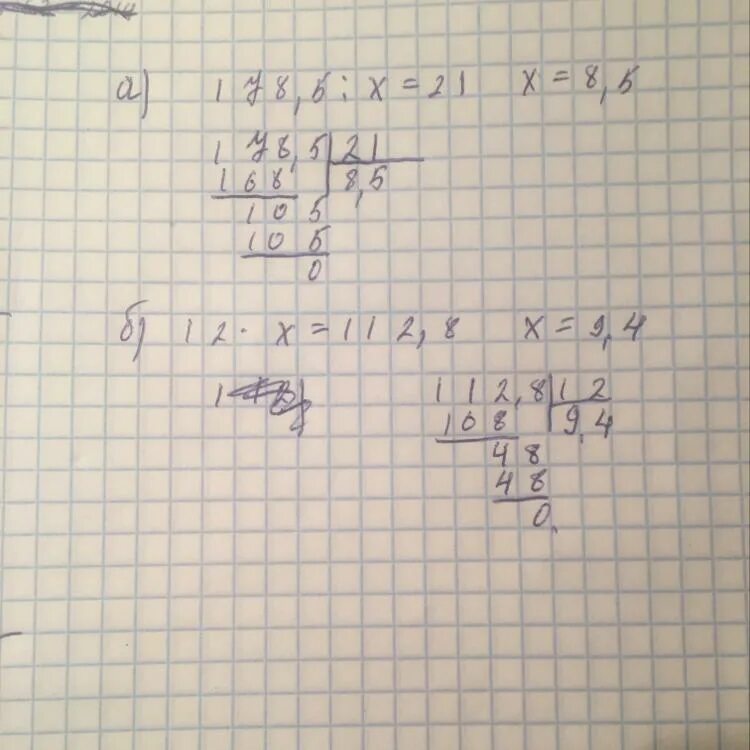 а) 178,5 : x = 21 x = 8,5
178,5 21
168 8,5
105
105
0
б) 12 · x = 112,8 x = 9,4
1
112,8 12
108 9,4
48
48
0